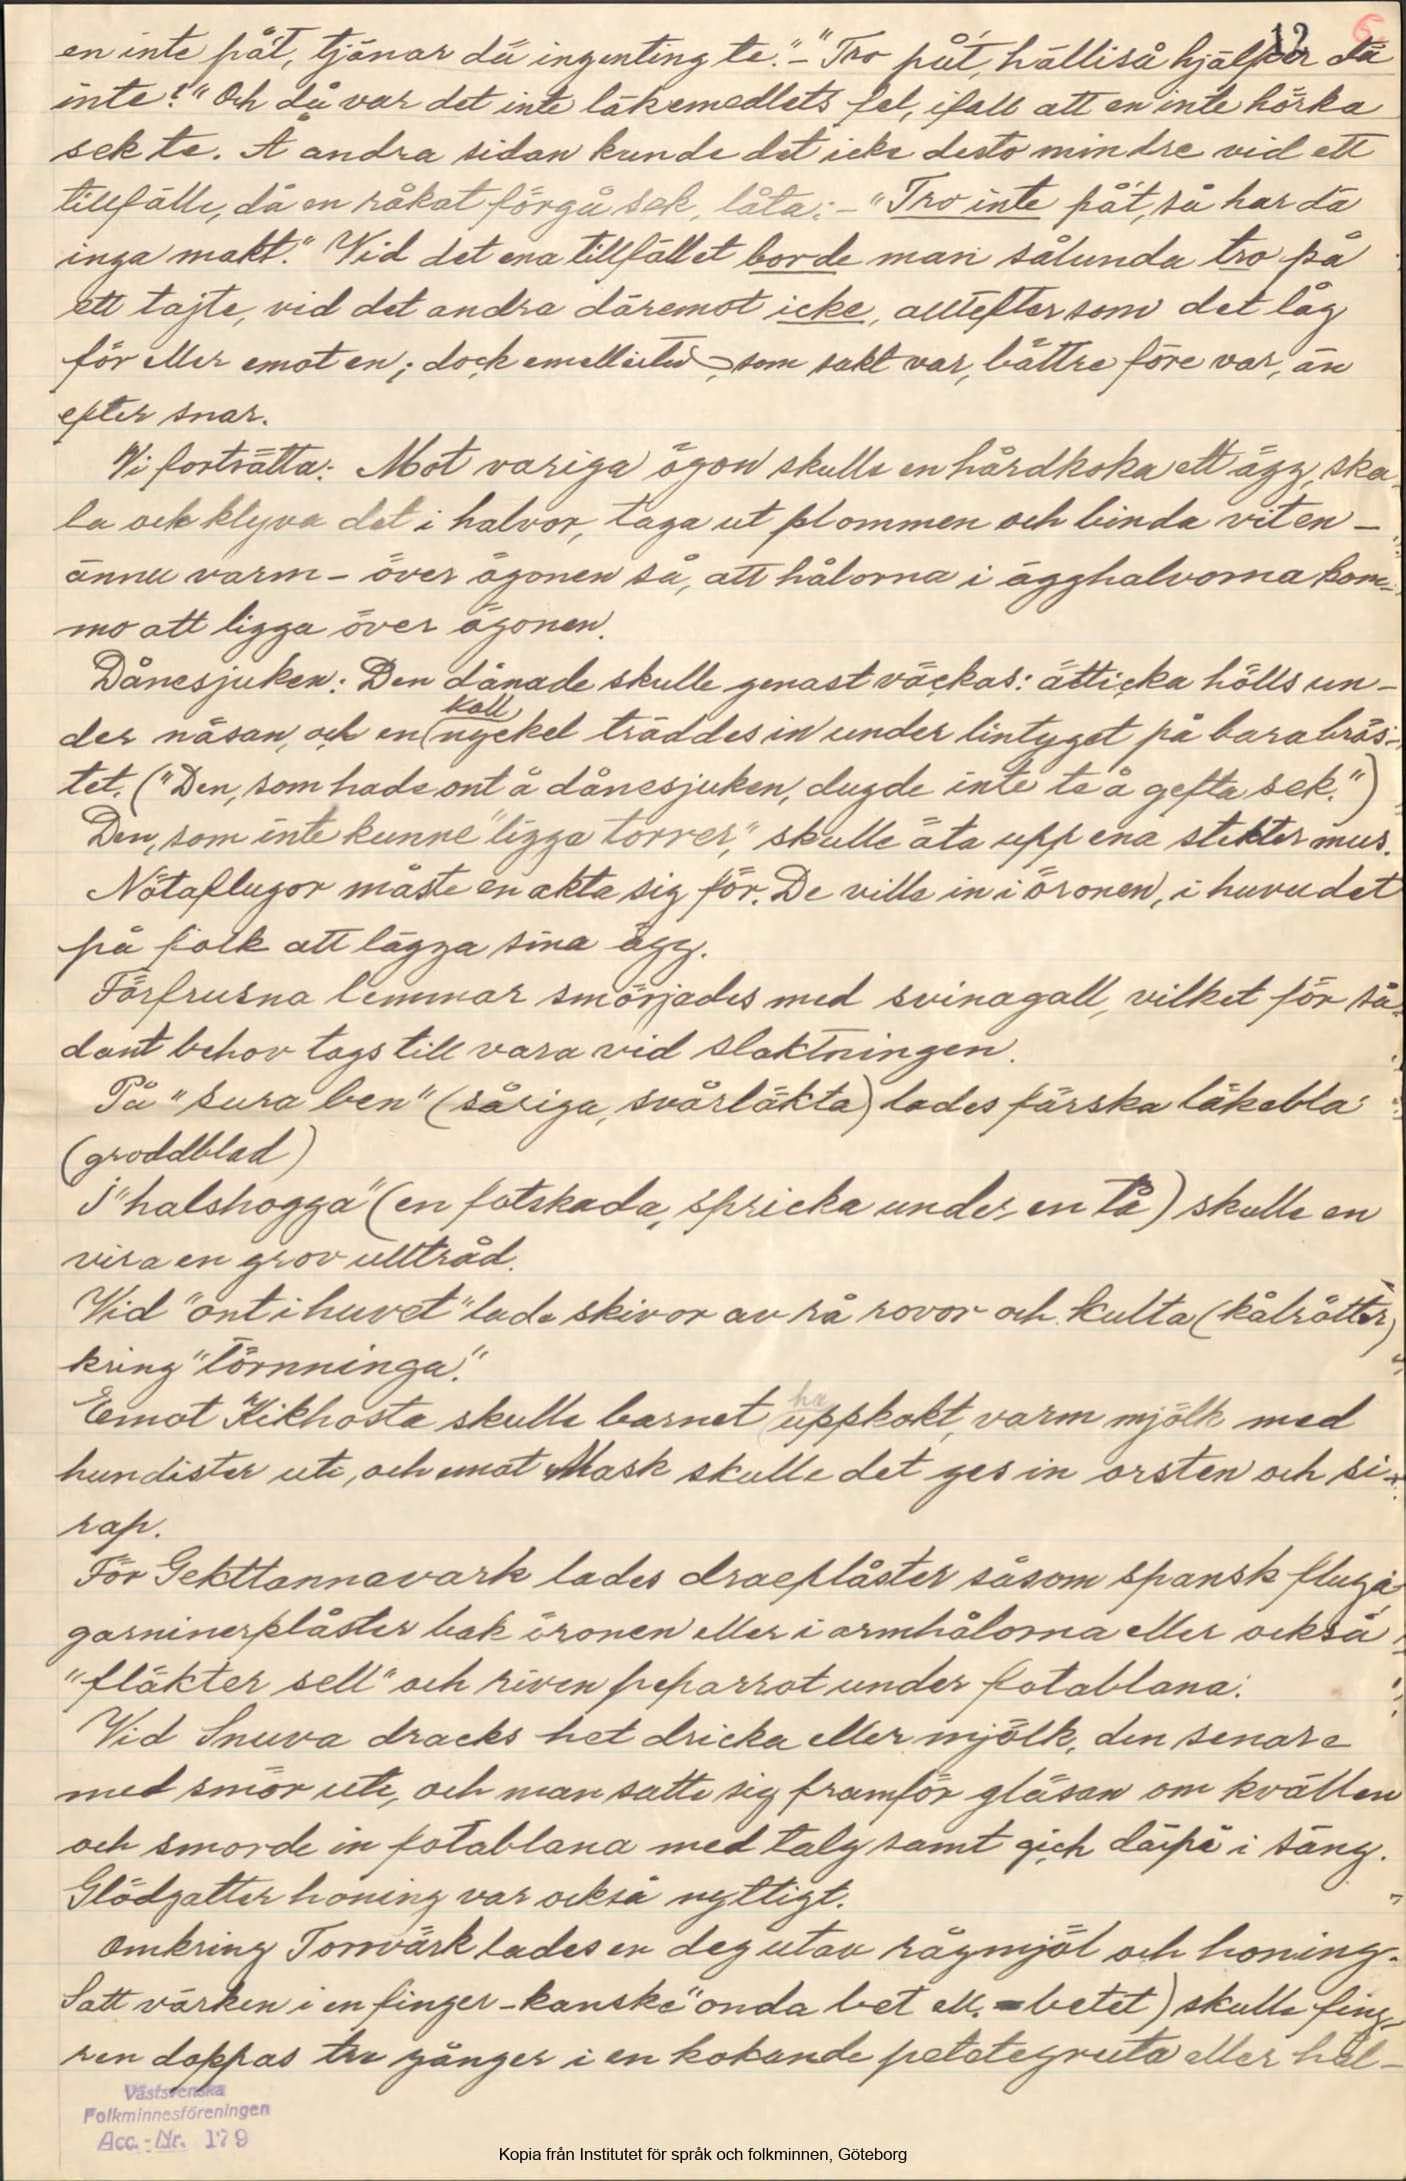 12 6.
en inte på't, tjänar dä ingenting te." - "Tro på't, hälliså hjälper dä
inte!" Och då var det inte läkemedlets fel, ifall att en inte hörka
sek te. Å andra sidan kunde det icke desto mindre vid ett
tillfälle, då en råkat förgå sek, låta: - "Tro inte på't, så har dä
inga makt." Vid det ena tillfället borde man sålunda tro på
ett tajte, vid det andra däremot icke, alltefter som det låg
för eller emot en; dock emellertid, som sakt var, bättre före var, än
efter snar.
Vi fortsätta: Mot variga ögon skulle en hårdkoka ett ägg, ska-
la och klyva det i halvor, taga ut plommen och binda viten -
ännu varm - över ögonen så, att hålorna i ägghalvorna kom-
mo att ligga över ögonen.
Dånesjuken: Den dånade skulle genast väckas: ätticka hölls un-
der näsan, och en kall nyckel träddes in under lintyget på bara brös-
tet. ("Den, som hade ont å dånesjuken, dugde inte te å gefta sek.")
Den, som inte kunne "ligga torrer," skulle äta upp ena stekter mus.
Nötaflugor måste en akta sig för. De ville in i öronen, i huvudet
på folk att lägga sina ägg.
Förfrusna lemmar smörjades med svinagall, vilket för så-
dant behov togs till vara vid slaktningen.
På "sura ben" (såriga, svårläkta) lades färska läkebla'
(groddblad)
I "halshogga" (en fotskada, spricka under en tå) skulle en
vira en grov ulltråd.
Vid "ont i huvet" lade skivor av rå rovor och kulta (kålrötter)
kring "törnninga."
Emot Kikhosta skulle barnet ha uppkokt, varm mjölk med
hundister uti, och emot Mask skulle det ges in orsten och si-
rap.
För Gekttannavark lades draeplåster såsom spansk fluga,
garninerplåster bak öronen eller i armhålorna eller också
"fläkter sell" och riven peparrot under fotablana.
Vid Snuva dracks het dricka eller mjölk, den senare
med smör uti, och man satte sig framför gläsan om kvällen
och smorde in fotablana med talg samt gich därpå i säng.
Glödgatter honing var också nyttigt.
Omkring Torrvärk lades en deg utav rågmjöl och honing.
Satt värken i en finger - kanske "onda bet ell. - betet) skulle fing-
ren doppas tre gånger i en kokande petetegruta eller hål-
Västsvenska
Folkminnesföreningen
Acc.-Nr. 179
Kopia från Institutet för språk och folkminnen, Göteborg